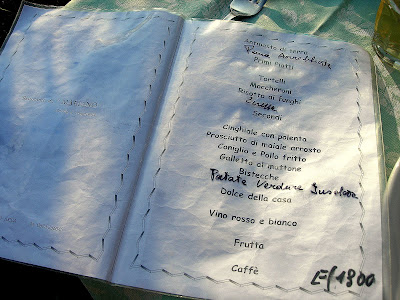 Primi Piatti
Tortelli
Maccheroni
Risotto di funghi
Zuppe
Secondi
Cinghiale con polenta
Prosciutto di maiale arrosto
Coniglio e Pollo fritto
Galletto al mattone
Bistecche
Patate Verdure Insalata
Dolce della casa
Vino rosso e bianco
Frutta
Caffè